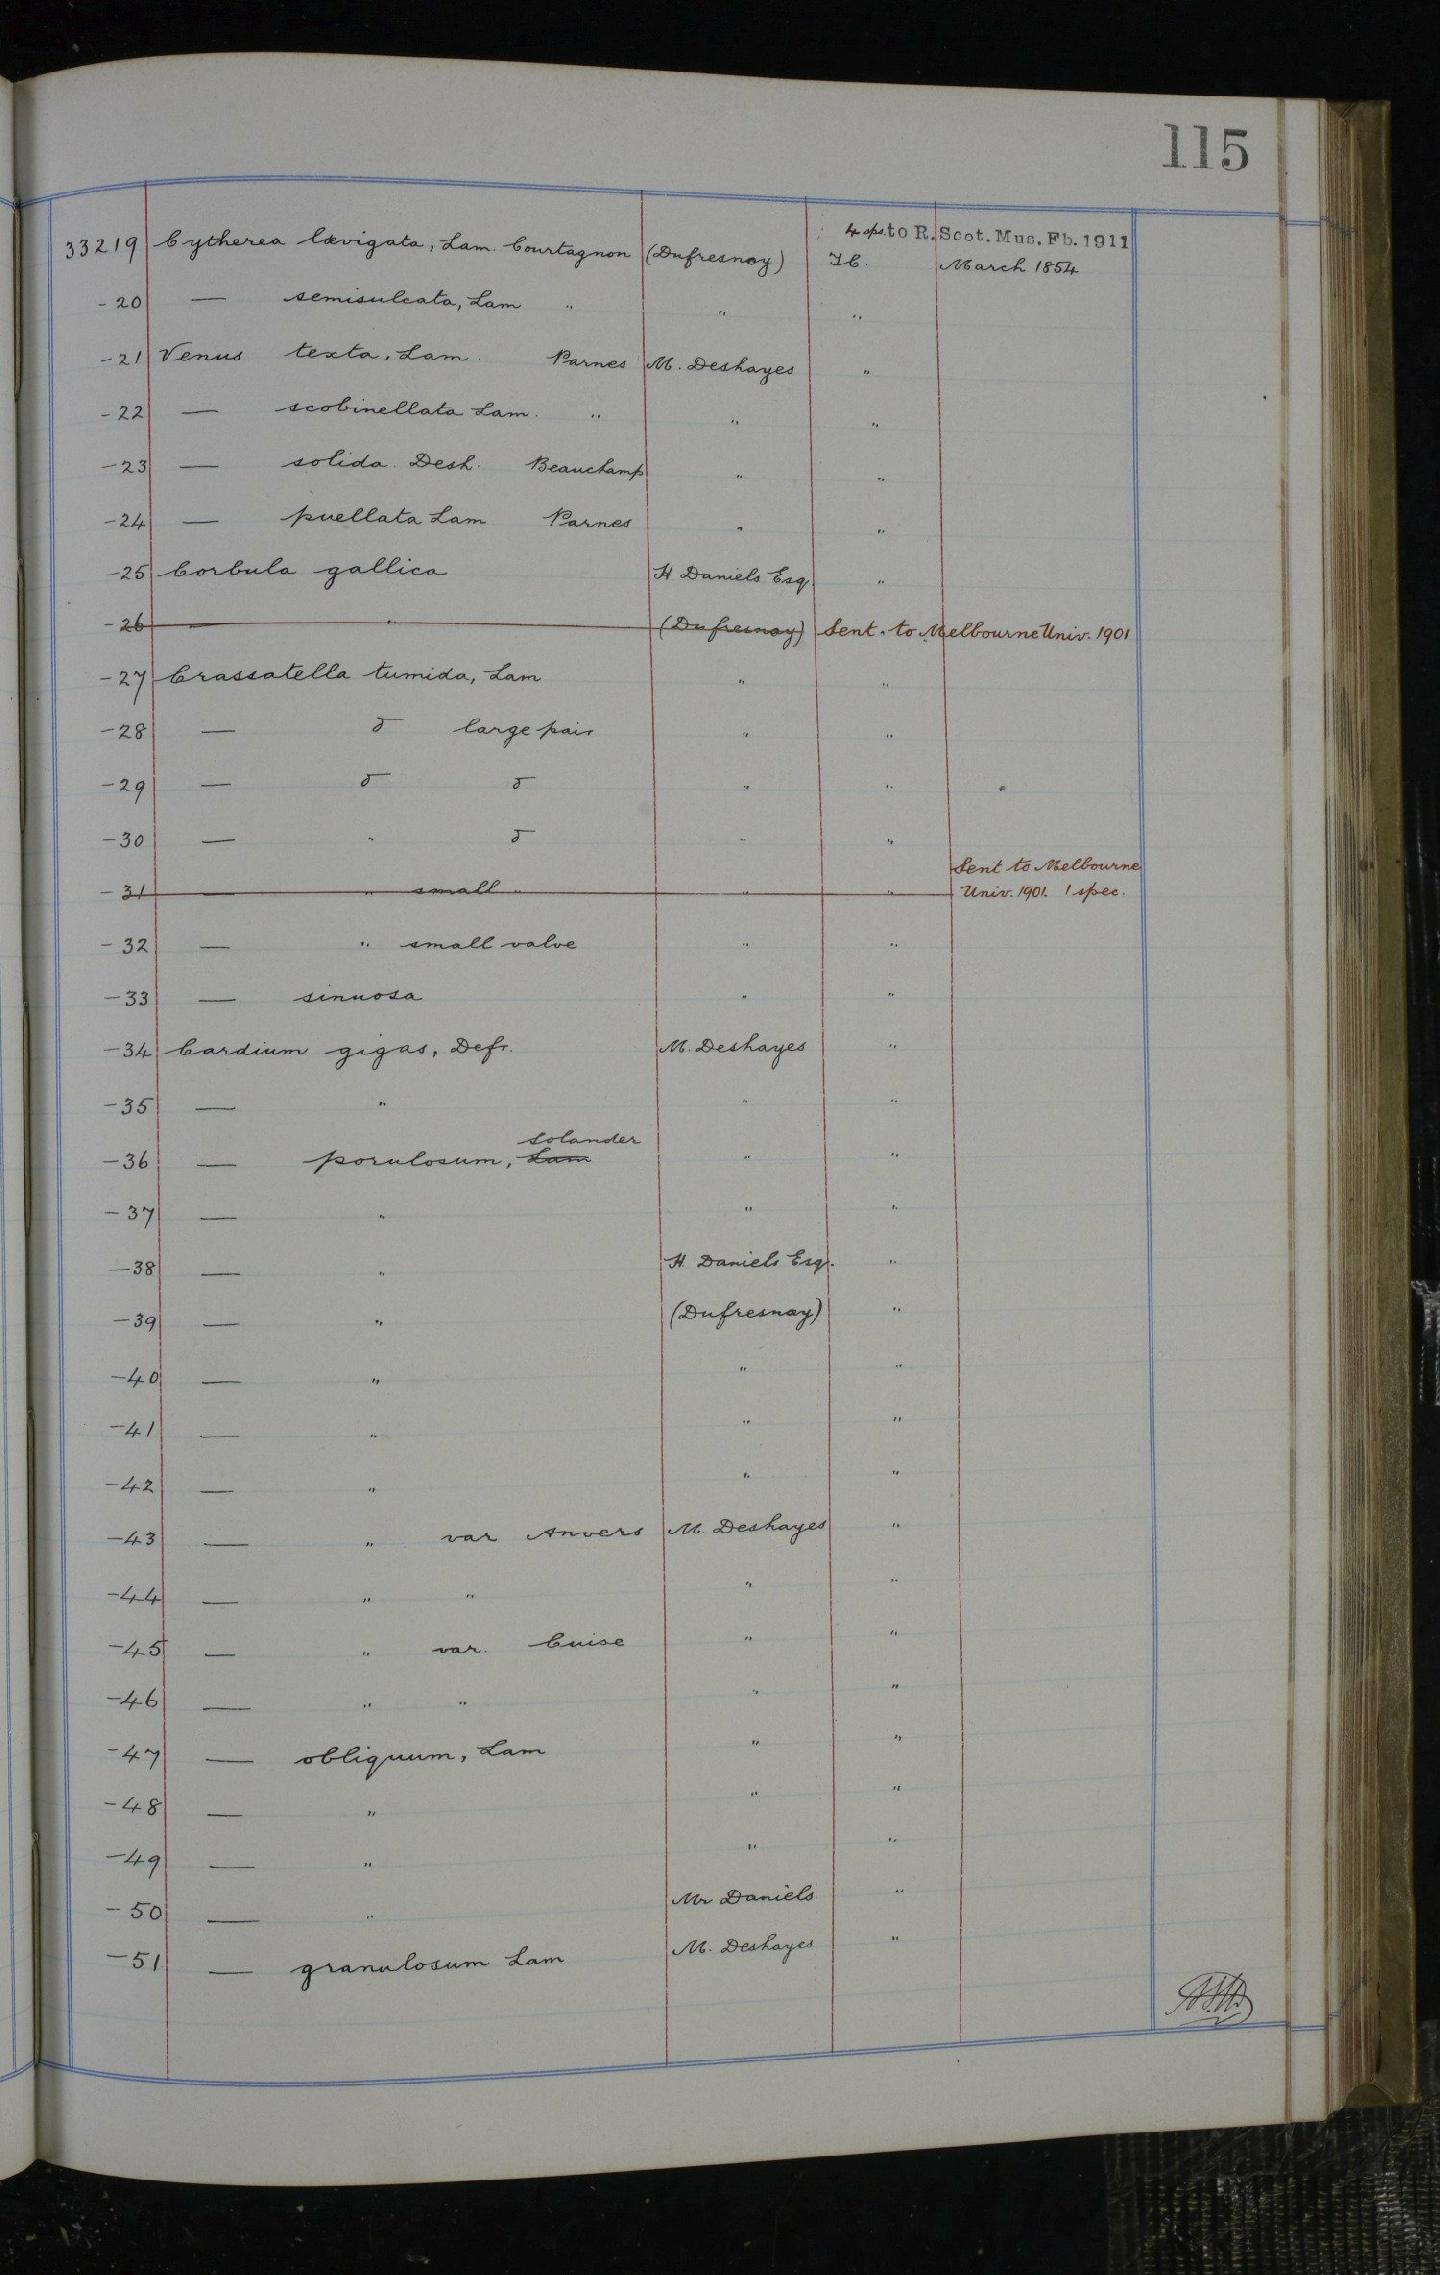 115
4 sps. to R. Scot. Mus. Fb. 1911
33219 Cytherea lævigata, Lam. Courtagnon (Dufresnoy) T.C. March 1854
-20 — semisulcata, Lam " " "
-21 Venus texta, Lam. Parnes M. Deshayes "
-22 — scobinellata Lam. " " "
-23 — solida Desh. Beauchamp " "
-24 — puellata Lam Parnes " "
-25 Corbula gallica H Daniels Esq. "
-26 — " (Dufresnoy) Sent to Melbourne Univ. 1901
-27 Crassatella tumida, Lam " "
-28 — do large pair " "
-29 — do do " " "
-30 — " do " "
Sent to Melbourne
-31 — " small " " " Univ. 1901. 1 spec.
-32 — " small valve " "
-33 — sinuosa " "
-34 Cardium gigas, Defr. M. Deshayes "
-35 — " " "
Solander
-36 — porulosum, Lam " "
-37 — " " "
-38 — " H. Daniels Esq. "
-39 — " (Dufresnoy) "
-40 — " " "
-41 — " " "
-42 — " " "
-43 — " var Anvers M. Deshayes "
-44 — " " " "
-45 — " var. Cuise " "
-46 — " " " "
-47 — obliquum, Lam " "
-48 — " " "
-49 — " " "
-50 — " Mr Daniels "
-51 — granulosum Lam M. Deshayes "